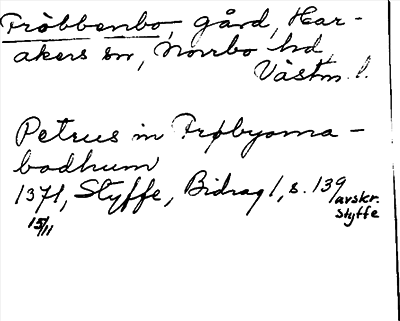 Fröbbenbo, gård, Har-
akers sn, Norrbo hd,
Västm. l.
Petrus in Frøbyoma-
bodhum
1371, Styffe, Bidrag 1, s. 139
15/11
avskr.
Styffe